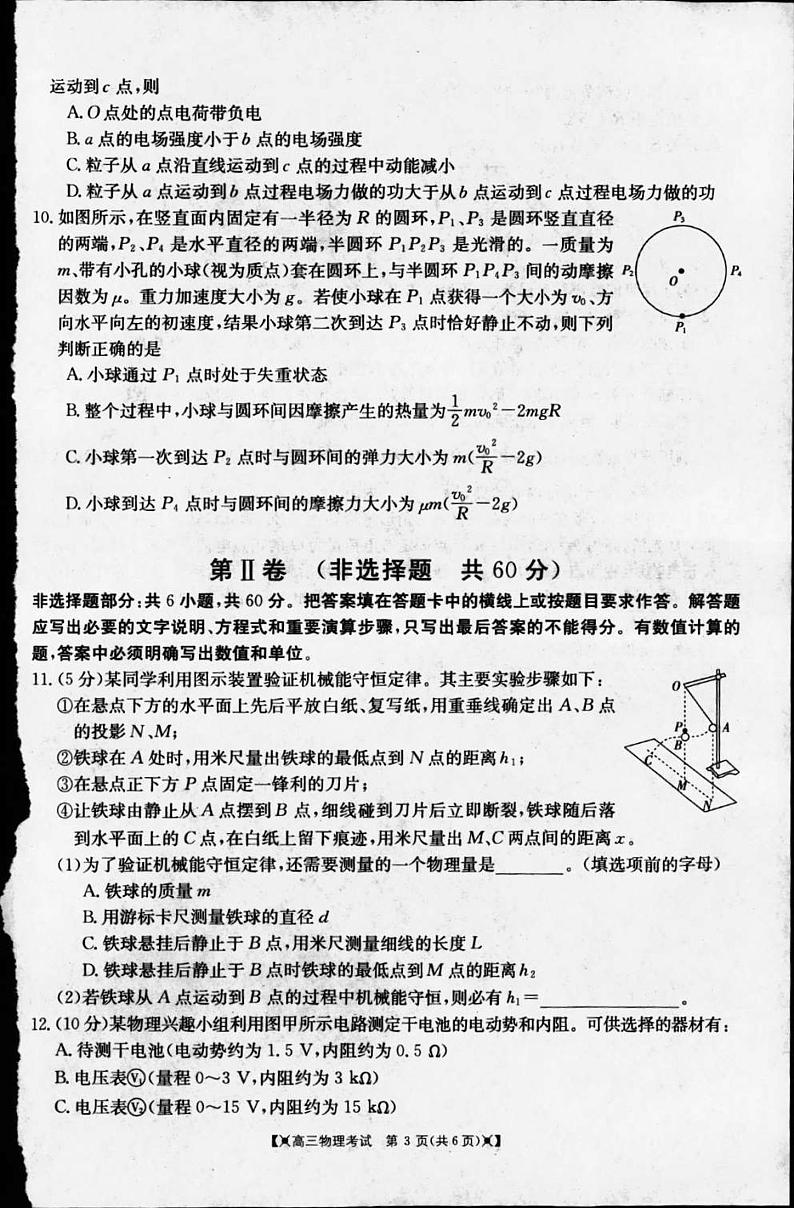 运动到c点,则
A.O点处的点电荷带负电
B.a点的电场强度小于b点的电场强度
C.粒子从a点沿直线运动到c点的过程中动能减小
D.粒子从a点运动到b点过程电场力做的功大于从b点运动到c点过程电场力做的功
10.如图所示,在竖直面内固定有一半径为R的圆环,P₁、P₃是圆环竖直直径
的两端,P₂、P₄是水平直径的两端,半圆环P₁P₂P₃是光滑的。一质量为
m、带有小孔的小球(视为质点)套在圆环上,与半圆环P₁P₄P₃间的动摩擦
因数为μ。重力加速度大小为g。若使小球在P₁点获得一个大小为v₀、方
向水平向左的初速度,结果小球第二次到达P₃点时恰好静止不动,则下列
判断正确的是
P₃
P₂
O
P₄
P₁
A.小球通过P₁点时处于失重状态
B.整个过程中,小球与圆环间因摩擦产生的热量为½mv₀²-2mgR
C.小球第一次到达P₂点时与圆环间的弹力大小为m(v₀²/R-2g)
D.小球到达P₄点时与圆环间的摩擦力大小为μm(v₀²/R-2g)
第Ⅱ卷 (非选择题 共60分)
非选择题部分:共6小题,共60分。把答案填在答题卡中的横线上或按题目要求作答。解答题
应写出必要的文字说明、方程式和重要演算步骤,只写出最后答案的不能得分。有数值计算的
题,答案中必须明确写出数值和单位。
11.(5分)某同学利用图示装置验证机械能守恒定律。其主要实验步骤如下:
①在悬点下方的水平面上先后平放白纸、复写纸,用重垂线确定出A、B点
的投影N、M;
②铁球在A处时,用米尺量出铁球的最低点到N点的距离h₁;
③在悬点正下方P点固定一锋利的刀片;
④让铁球由静止从A点摆到B点,细线碰到刀片后立即断裂,铁球随后落
到水平面上的C点,在白纸上留下痕迹,用米尺量出M、C两点间的距离x。
O
P
B
A
C
M
N
(1)为了验证机械能守恒定律,还需要测量的一个物理量是______。(填选项前的字母)
A.铁球的质量m
B.用游标卡尺测量铁球的直径d
C.铁球悬挂后静止于B点,用米尺测量细线的长度L
D.铁球悬挂后静止于B点时铁球的最低点到M点的距离h₂
(2)若铁球从A点运动到B点的过程中机械能守恒,则必有h₁=____________。
12.(10分)某物理兴趣小组利用图甲所示电路测定干电池的电动势和内阻。可供选择的器材有:
A.待测干电池(电动势约为1.5 V,内阻约为0.5 Ω)
B.电压表Ⓥ₁(量程0~3 V,内阻约为3 kΩ)
C.电压表Ⓥ₂(量程0~15 V,内阻约为15 kΩ)
【高三物理考试 第3页(共6页)】